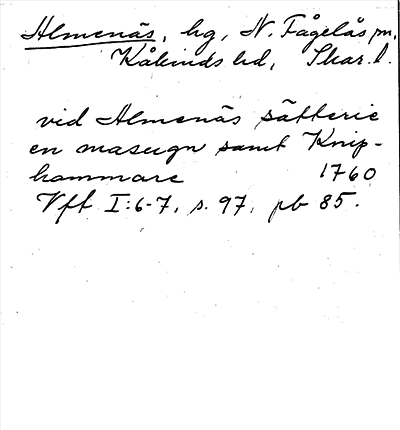 Almenäs, hg, N. Fågelås sn,
Kåkinds hd, Skar. l.
vid Almenäs sätterie
en masugn samt Knip-
hammare 1760
Vft I:6-7, s. 97, pb 85.